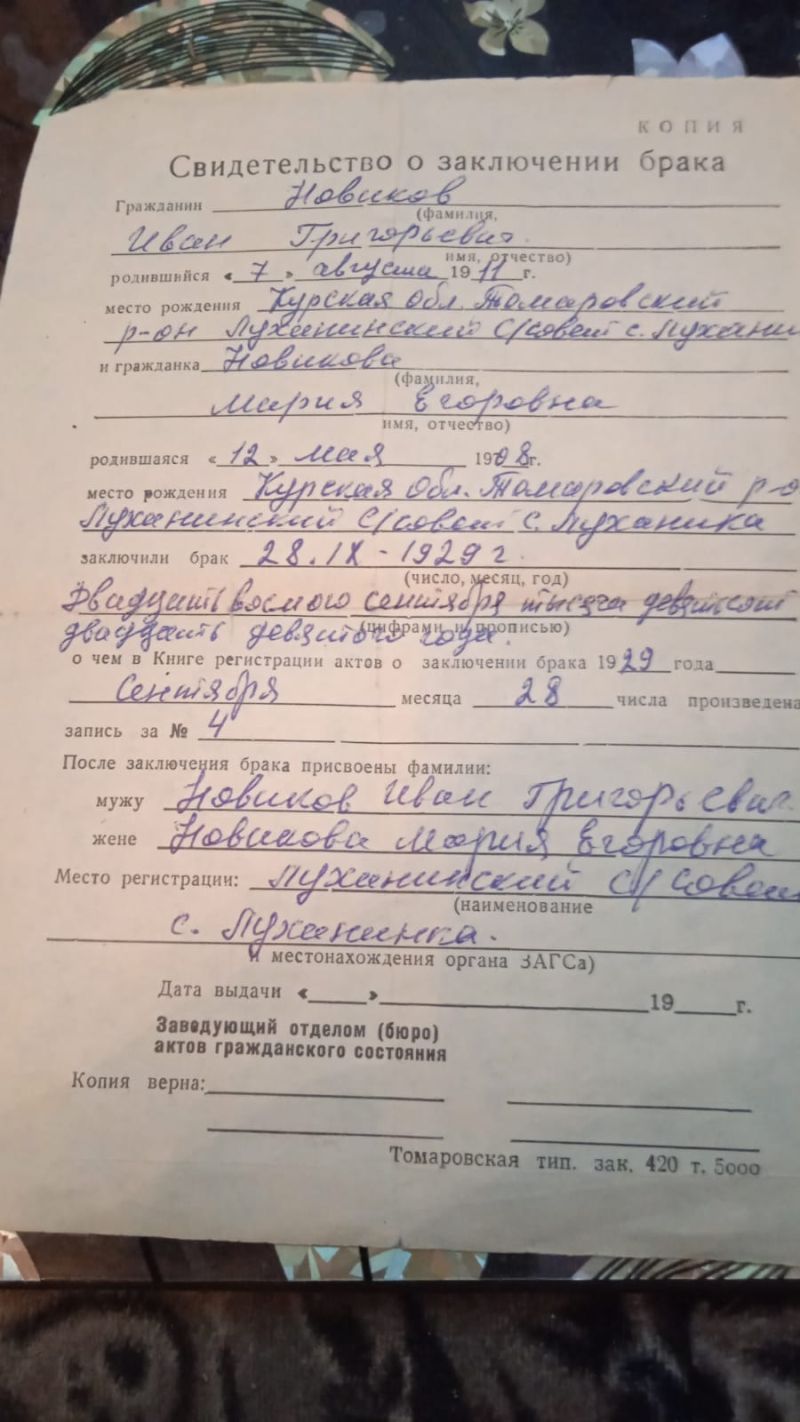 КОПИЯ
Свидетельство о заключении брака
Гражданин Новиков
(фамилия,
Иван Григорьевич
имя, отчество)
родившийся «7» августа 1911 г.
место рождения Курская Обл. Томаровский
р-он Луханинский С/совет с. Лухани
и гражданка Новикова
(фамилия,
Мария Егоровна
имя, отчество)
родившаяся «12» мая 1908 г.
место рождения Курская Обл. Томаровский р-о
Луханинский С/совет с. Луханика
заключили брак 28.IX-1929 г.
(число, месяц, год)
Двадцать восмого сентября тысяча девятьсот
двадцать девятого года.
(цифрами и прописью)
о чем в Книге регистрации актов о заключении брака 1929 года
Сентября месяца 28 числа произведена
запись за № 4
После заключения брака присвоены фамилии:
мужу Новиков Иван Григорьевич
жене Новикова Мария Егоровна
Место регистрации: Луханинский С/Совет
(наименование
с. Луханинка.
и местонахождения органа ЗАГСа)
Дата выдачи «____»____ 19____г.
Заведующий отделом (бюро)
актов гражданского состояния
Копия верна:
Томаровская тип. зак. 420 т. 5000